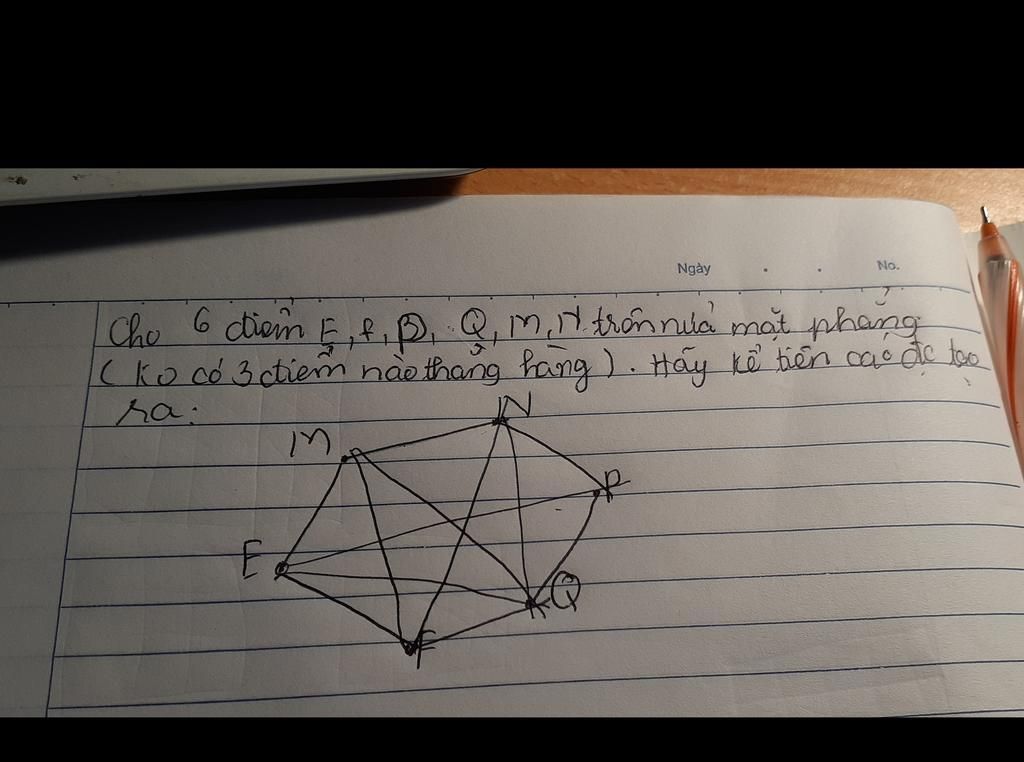 Ngày No.
Cho 6 điểm E, f, P, Q, M, N trên nửa mặt phẳng
( ko có 3 điểm nào thẳng hàng ). Hãy kể tiên các đc tạo
ra:
M N
P
E
Q
F